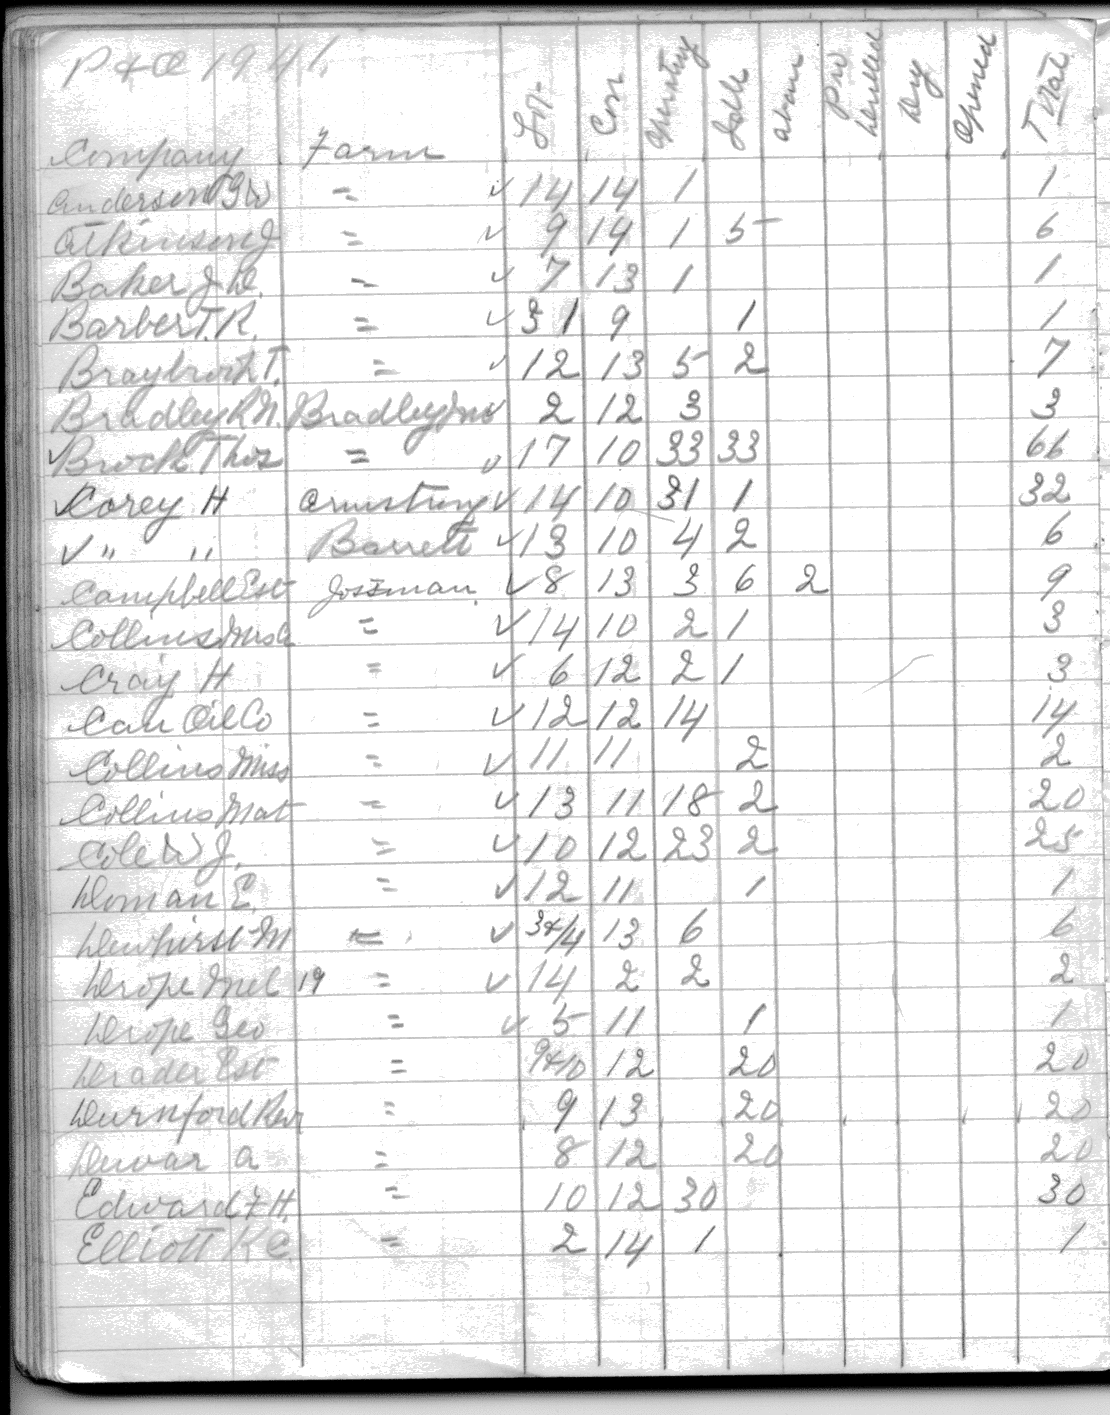 P & O 1941.
Company Farm Lot Con Operating Idle Aban Pro Drilled Dry Opened Total
Anderson G W = ✓ 14 14 1 1
Atkinson J = ✓ 9 14 1 5 6
Baker J D. = ✓ 7 13 1 1
Barber T. R. = ✓ 31 9 1 1
Braybrook T. = ✓ 12 13 5 2 7
Bradley R. N. Bradley ✓ 2 12 3 3
✓ Brock Thos = ✓ 17 10 33 33 66
✓ Corey H Armstrong ✓ 14 10 31 1 32
✓ " " Barrett ✓ 13 10 4 2 6
Campbell Est Jossman ✓ 8 13 3 6 2 9
Collins = ✓ 14 10 2 1 3
Craig H = ✓ 6 12 2 1 3
Can Oil Co = ✓ 12 12 14 14
Collins Miss = ✓ 11 11 2 2
Collins Mat = ✓ 13 11 18 2 20
Cole W J. = ✓ 10 12 23 2 25
Doman E. = ✓ 12 11 1 1
Dewhirst M = ✓ 3&4 13 6 6
Drope Mel 19 = ✓ 14 2 2 2
Drope Geo = ✓ 5 11 1 1
Drader Est = 9&10 12 20 20
Durnford = 9 13 20 20
Dewar A = 8 12 20 20
Edward F H. = 10 12 30 30
Elliott K C = 2 14 1 1